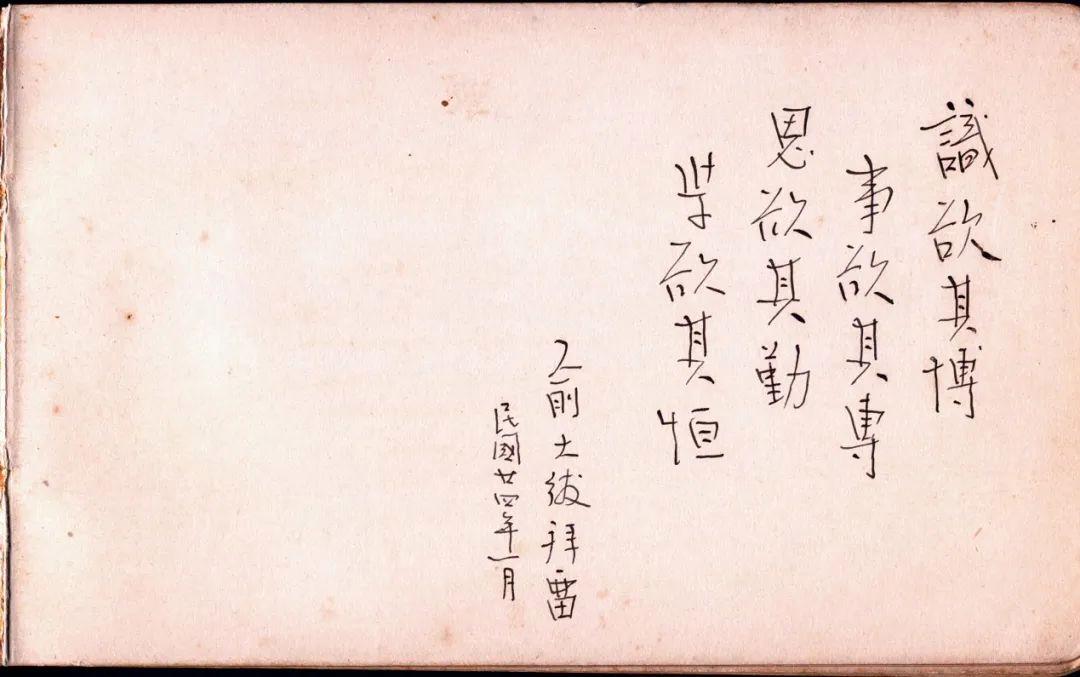 識欲其博
事欲其專
思欲其勤
学欲其恒
俞大紱拜畱
民國廿四年一月